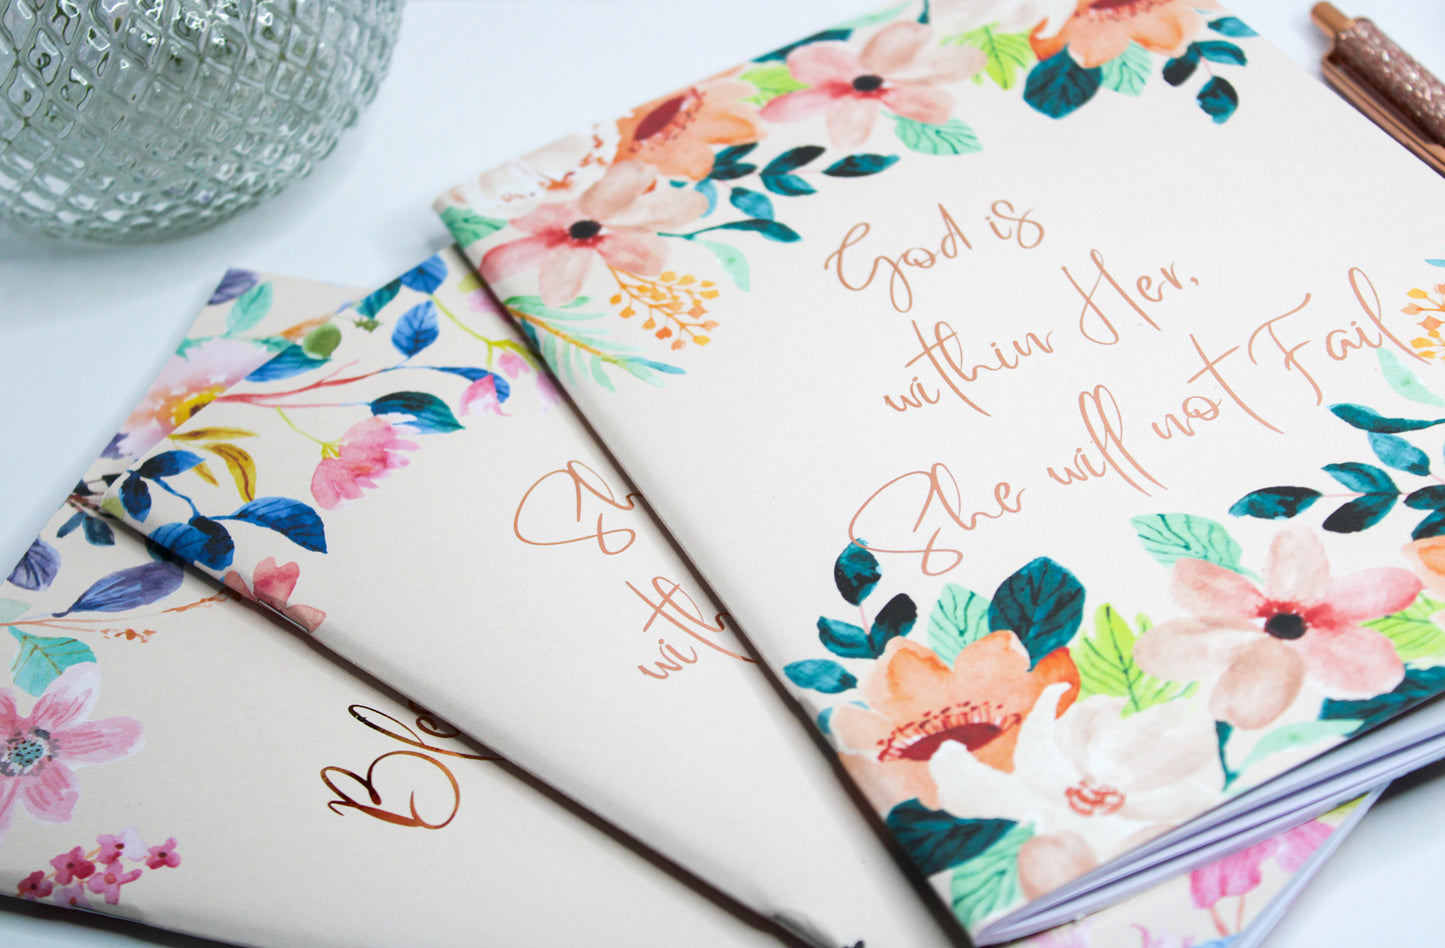 God is
within Her,
She will not Fail
Sh
with
Ble